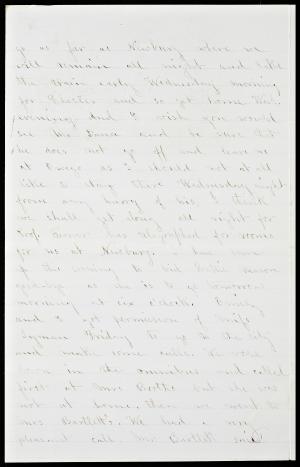 go as far as Newburg where we
will remain all night and take
the train early Wednesday morning
for and so get home Wed.
evening. And I wish you would
see Mr and be sure that
he does not go off and leave us
at Owego as I should not at all
like to stay there Wednesday night
from any hurry of his. I think
we shall get along all right for
Prof. has telegraphed for rooms
for us at Newburg. I have been
up this evening to bid
goodbye as she is to go tomorrow
morning at six o'clock. Emily
and I got permission of Miss
Lyman Friday to go to the city
and make some calls. We went
down in the omnibus and called
first at Mrs but she was
not at home, then we went to
Mrs Bartlett's. We had a very
pleasant call. Mr. Bartlett